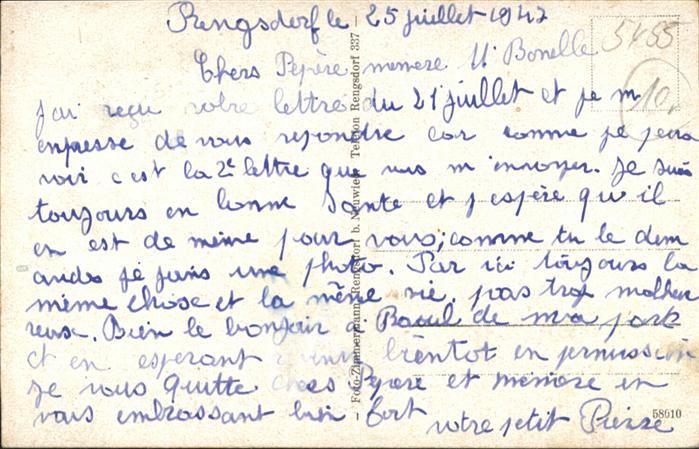 Rengsdorf le 25 juillet 1947
5485
10,
Chers Pépère memere M Bonelle
J'ai reçu votre lettre du 21 juillet et je m
empresse de vous repondre car comme je peux
voir c'est la 2e lettre que vous m'envoyer. Je suis
toujours en bonne Sante et j espère qu'il
en est de même pour vous; comme tu le dem
andes je joins une photo. Par ici toujours la
même chose et la même vie, pas trop malheu
reuse. Bien le bonjour a Raoul de ma part
et en esperant venir bientot en permission
Je vous quitte chers Pepere et memere en
vous embrassant bien fort
votre petit Pierre
Foto-Zimmermann, Rengsdorf b. Neuwied Telefon Rengsdorf 337
58610